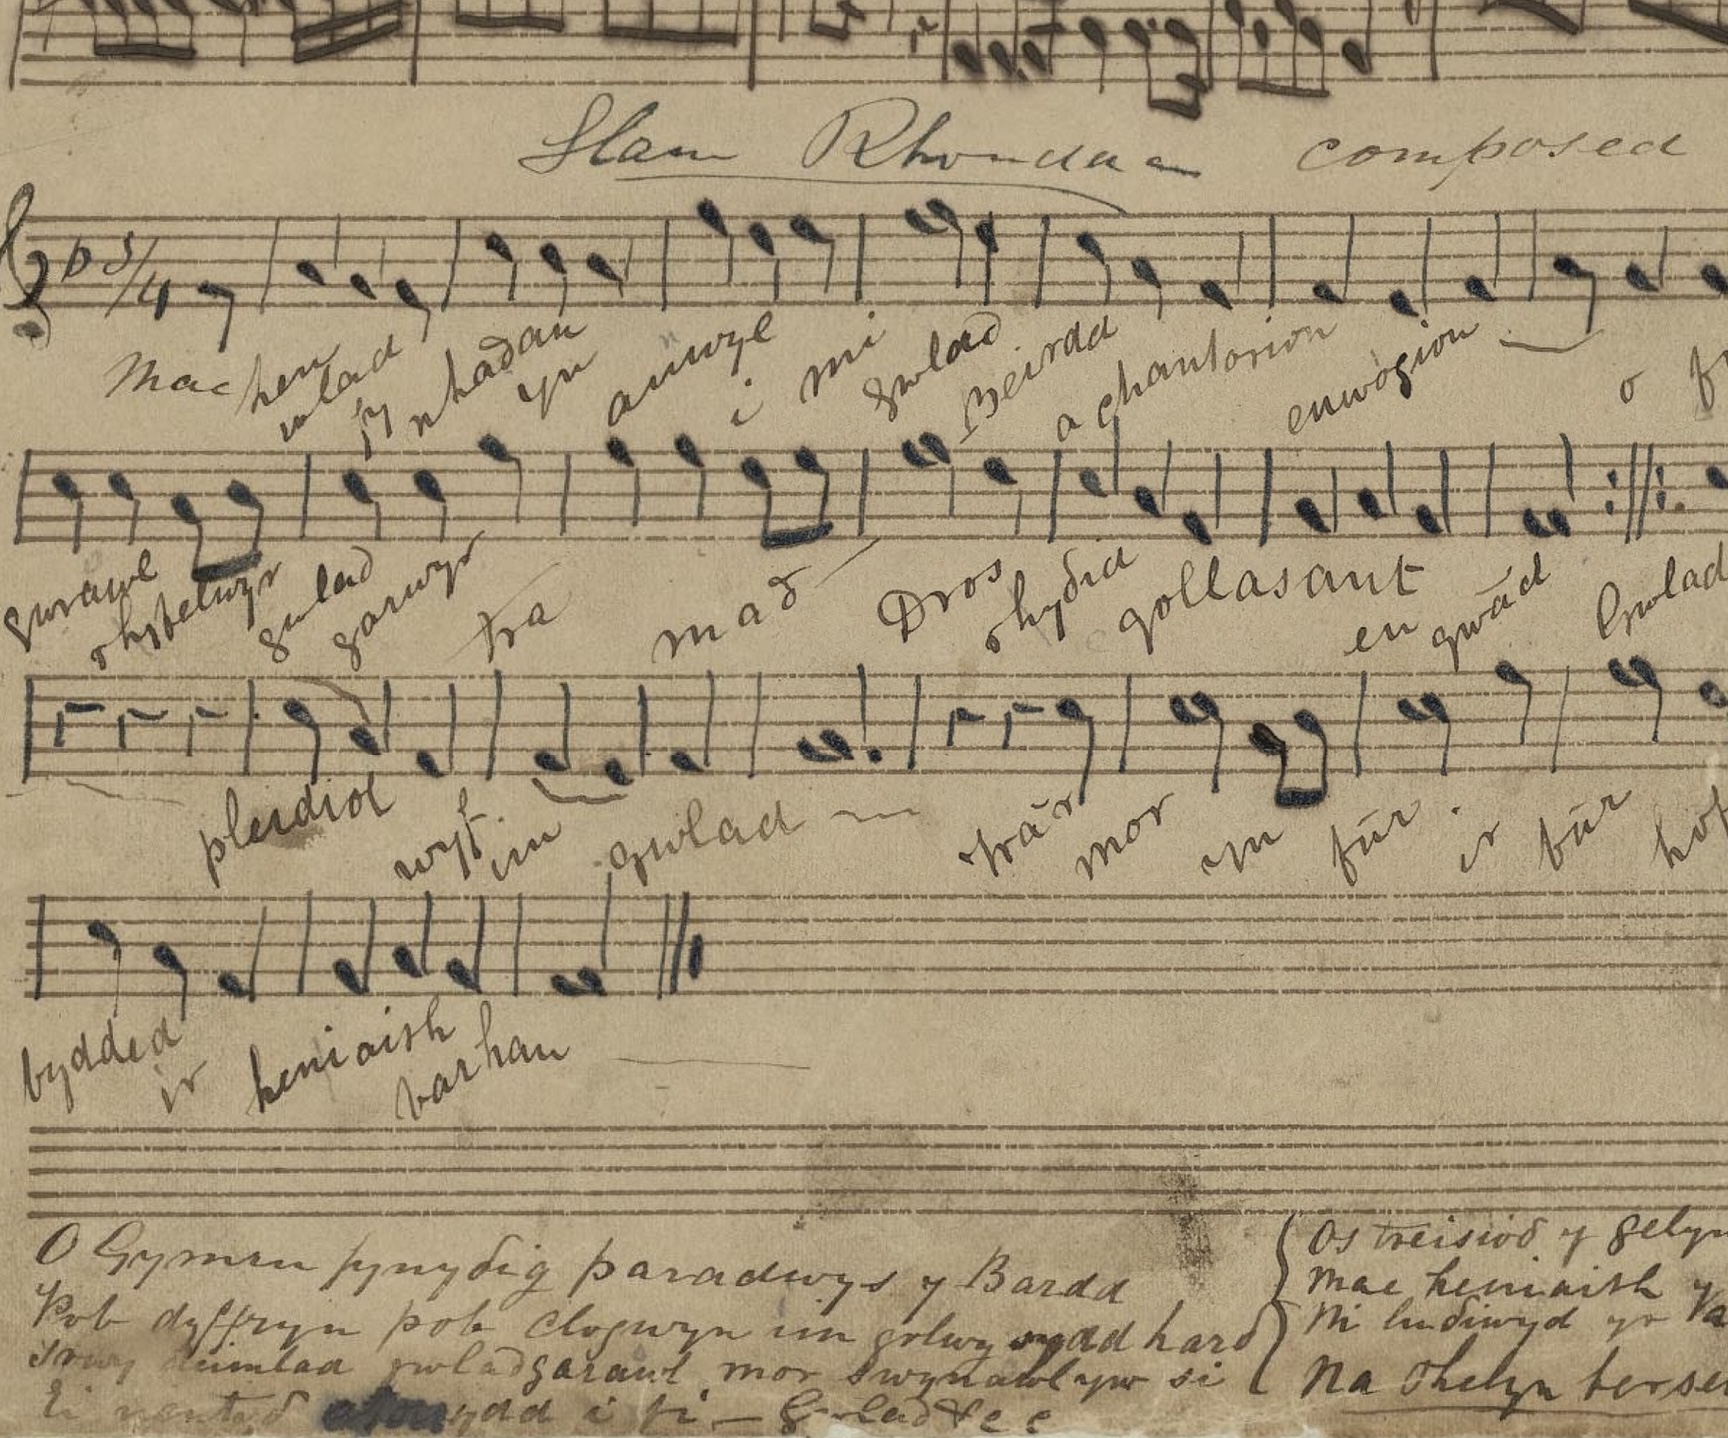 Glan Rhondda composed
3/4
Mae hen wlad fy nhadau yn anwyl i mi gwlad Beirdd a chantorion enwogion o
gwrawl rhyfelwyr gwlad garwyr tra mað Dros rhyðid gollasant eu gwâd Gwlad
pleidiol wyf im gwlad trâ'r mor yn fûr ir bûr
bydded ir heniaith barhau
O Gymru fynyðig paradwys y Bardd
Pob dyffryn pob clogwyn im golwg sydd hard
Trwy deimlad gwladgarawl mor swynawl yw si
Ei nentyð ydd i fi — Gwlad &c c
Os treisioð y gelyn
Mae heniaith y
Ni ludiwyd yr
Na thelyn